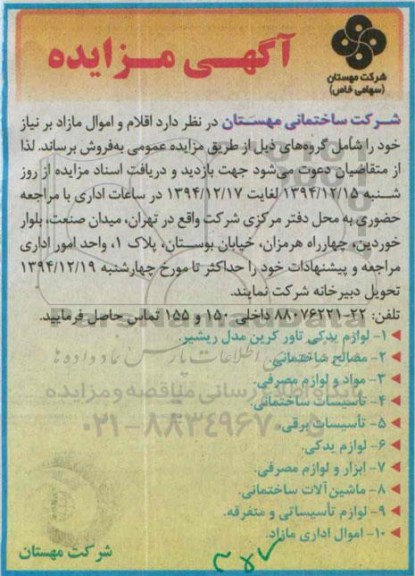 آگهی مزایده
شرکت مهستان
(سهامی خاص)
شرکت ساختمانی مهستان در نظر دارد اقلام و اموال مازاد بر نیاز
خود را شامل گروه‌های ذیل از طریق مزایده عمومی به‌فروش برساند. لذا
از متقاضیان دعوت می‌شود جهت بازدید و دریافت اسناد مزایده از روز
شنبه ۱۳۹۴/۱۲/۱۵ لغایت ۱۳۹۴/۱۲/۱۷ در ساعات اداری با مراجعه
حضوری به محل دفتر مرکزی شرکت واقع در تهران، میدان صنعت، بلوار
خوردین، چهارراه هرمزان، خیابان بوستان، پلاک ۱، واحد امور اداری
مراجعه و پیشنهادات خود را حداکثر تا مورخ چهارشنبه ۱۳۹۴/۱۲/۱۹
تحویل دبیرخانه شرکت نمایند.
تلفن: ۲۲-۸۸۰۷۶۲۲۱ داخلی ۱۵۰ و ۱۵۵ تماس حاصل فرمایید.
۱- لوازم یدکی تاور کرین مدل ریشیر.
۲- مصالح ساختمانی.
۳- مواد و لوازم مصرفی.
۴- تأسیسات ساختمانی.
۵- تأسیسات برقی.
۶- لوازم یدکی.
۷- ابزار و لوازم مصرفی.
۸- ماشین‌آلات ساختمانی.
۹- لوازم تأسیساتی و متفرقه.
۱۰- اموال اداری مازاد.
شرکت مهستان
پایگاه اطلاع رسانی مناقصه و مزایده
۰۲۱-۸۸۳۴۹۶۷۰